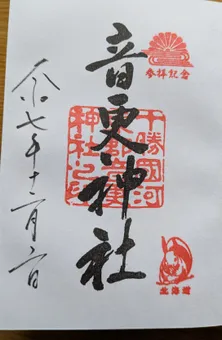 参拝記念
音更神社
十勝国河
東郡音更
神社之印
北海道
令和七年十二月二日